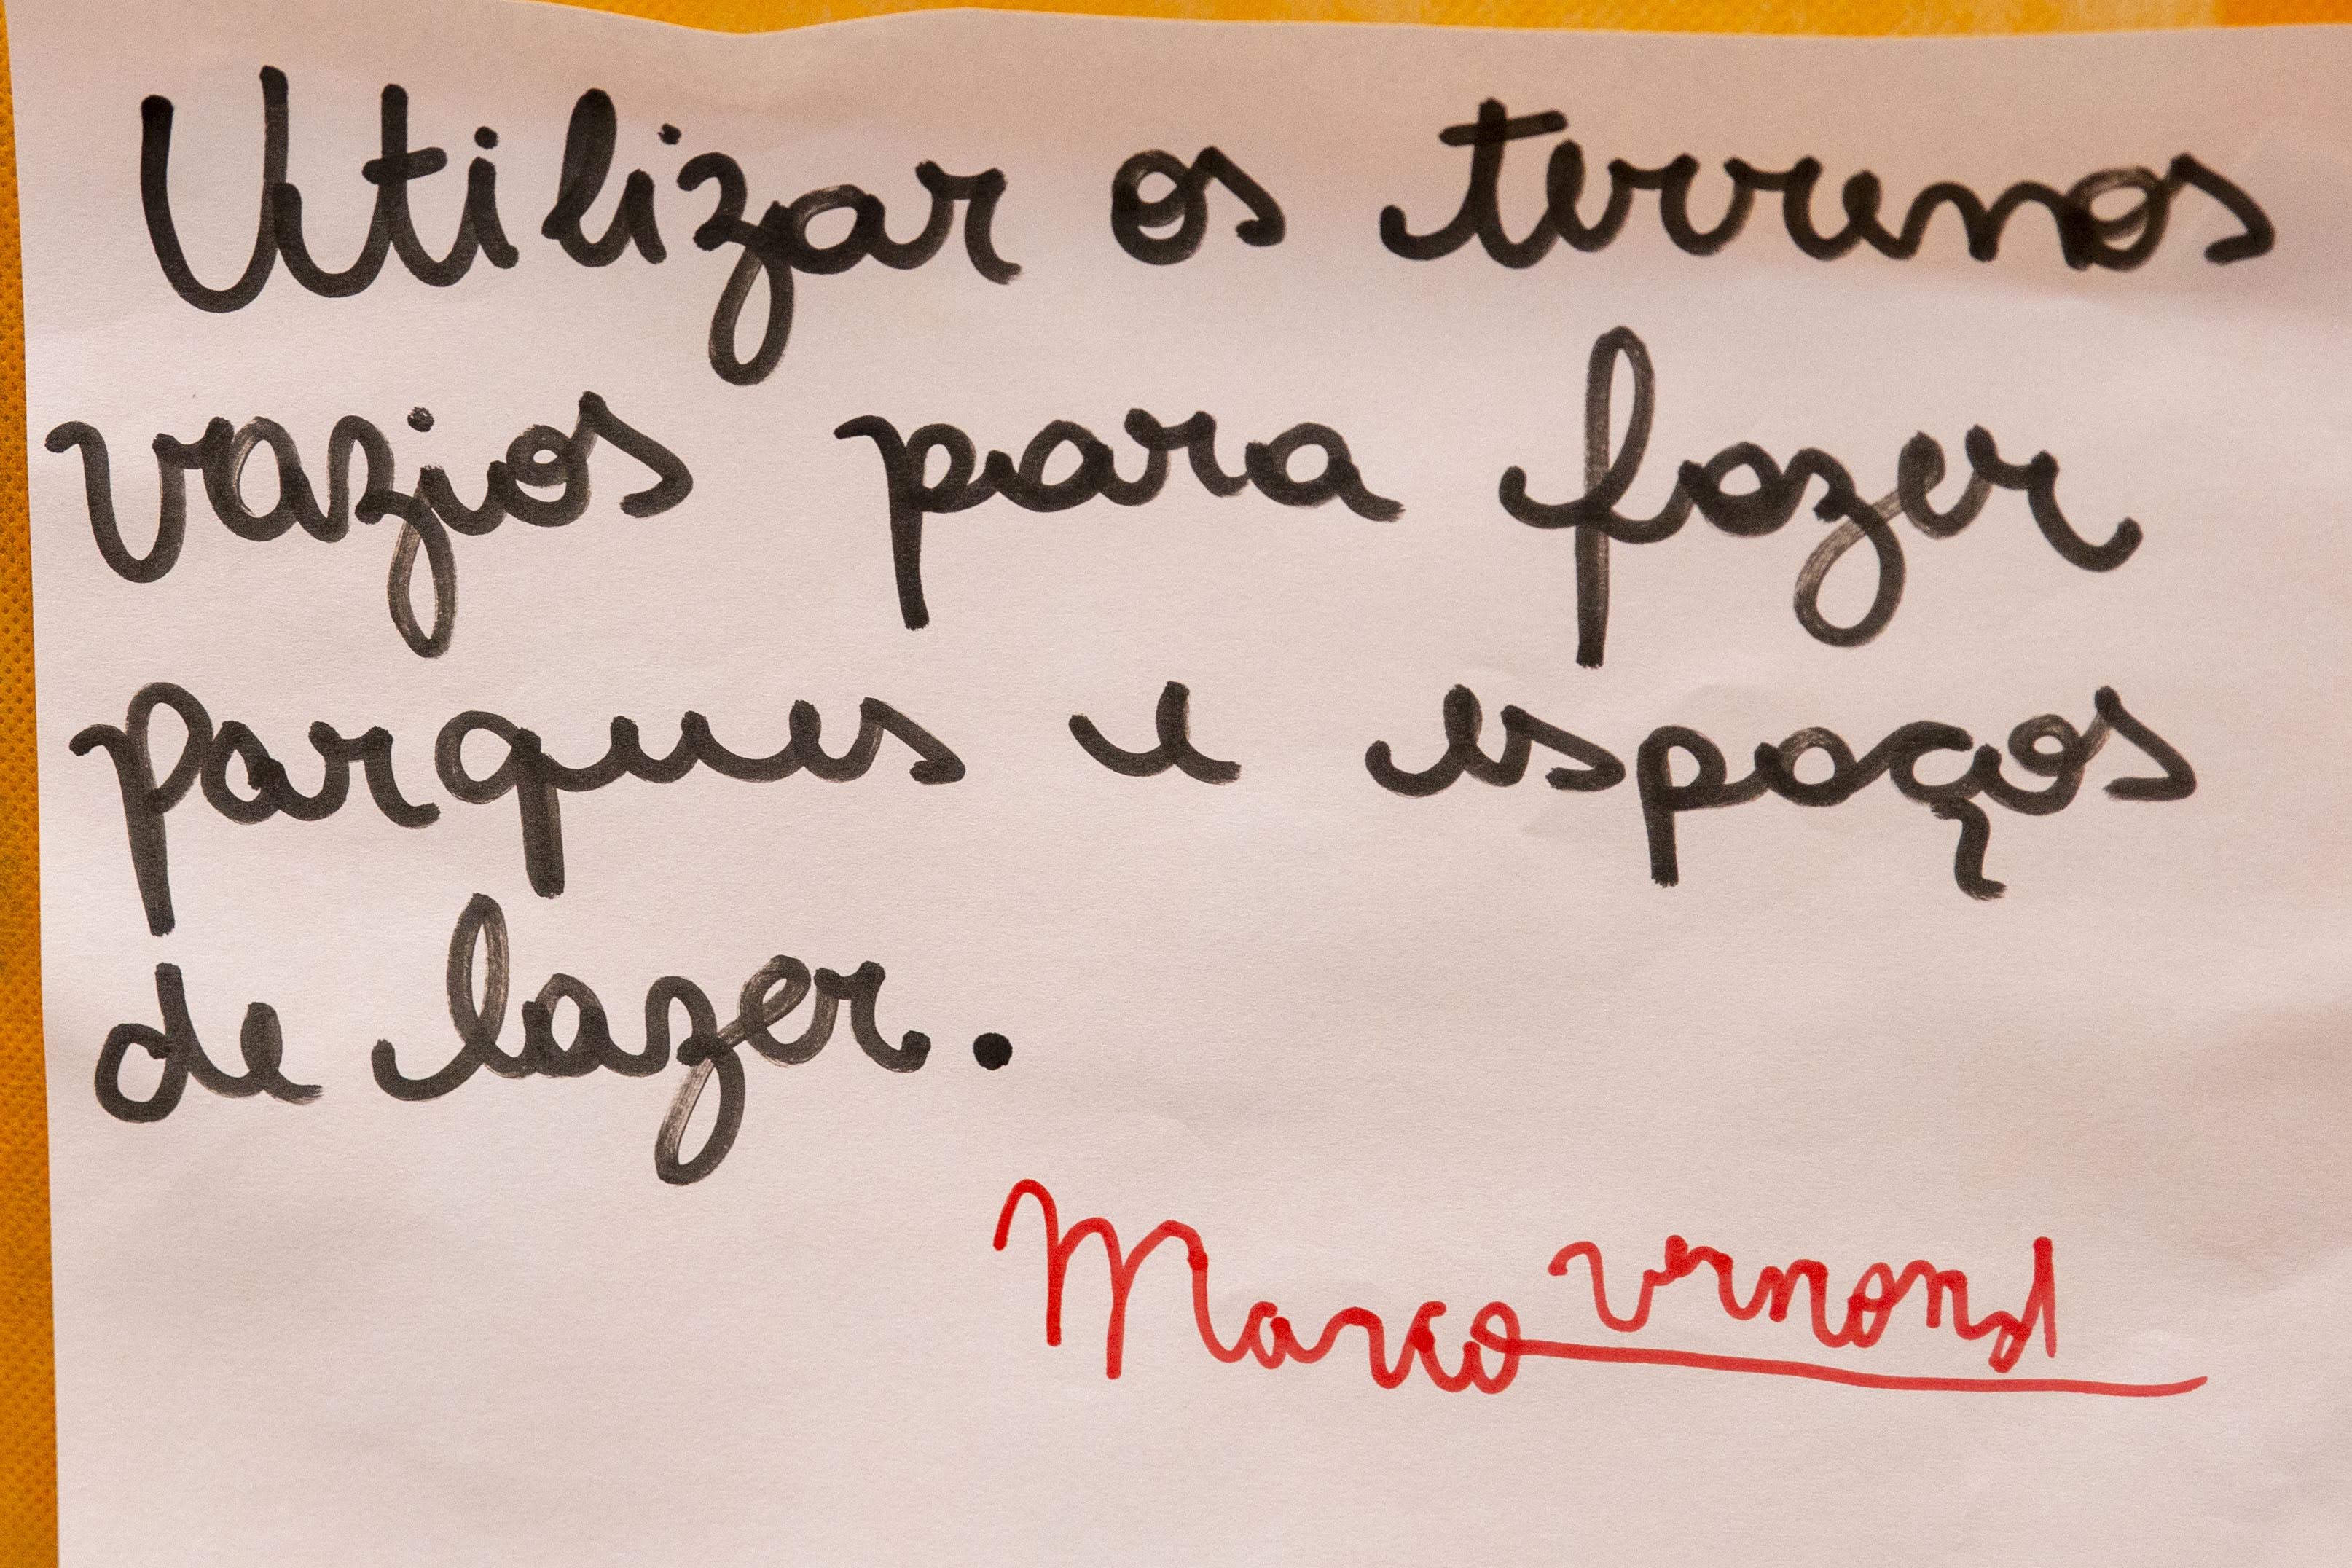 Utilizar os terrenos
vazios para fazer
parques e espaços
de lazer.
Marco